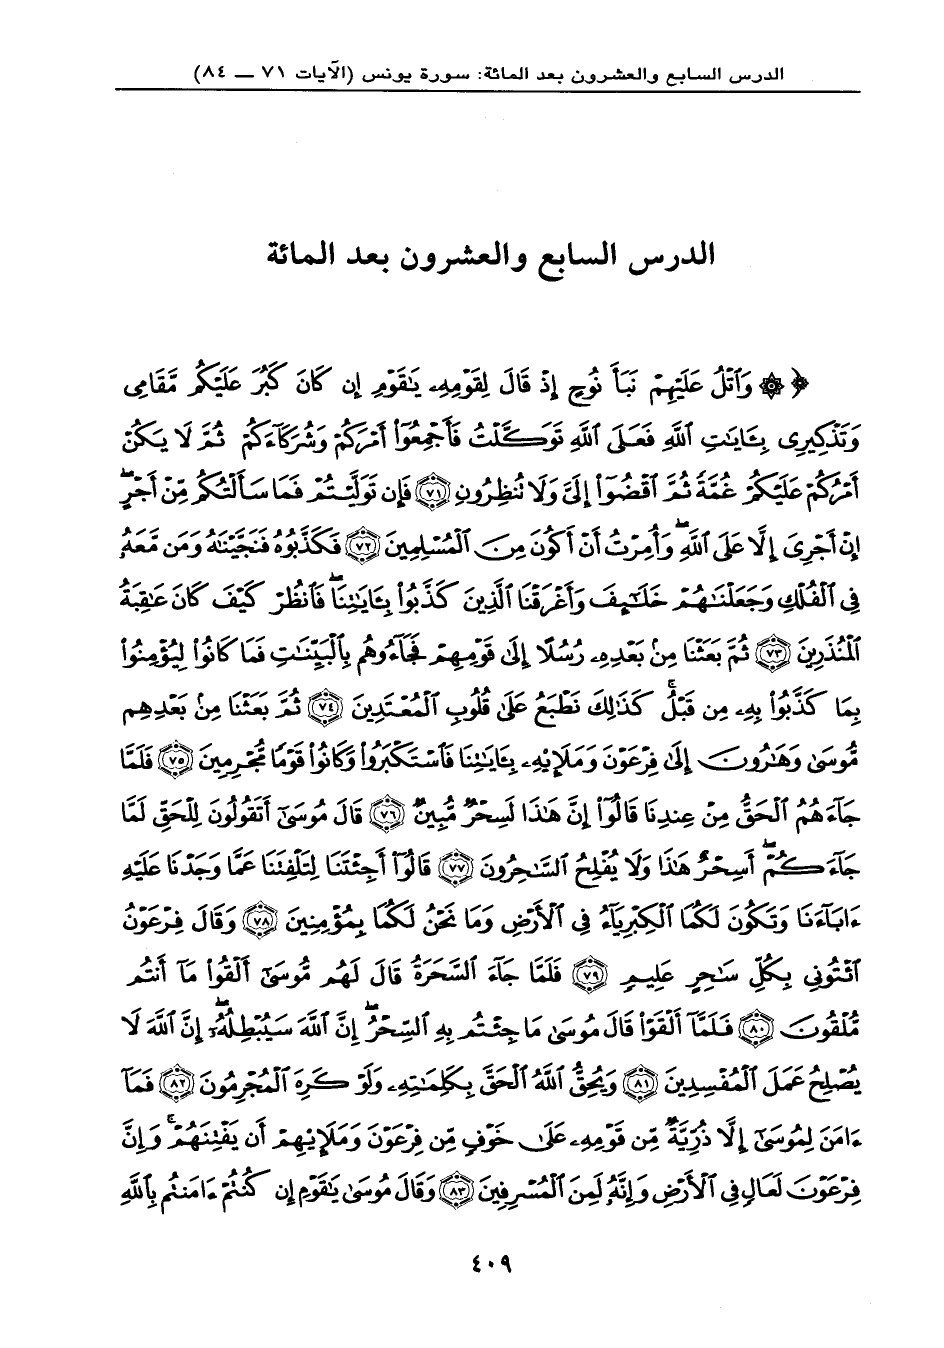 الدرس السابع والعشرون بعد المائة: سورة يونس (الآيات ٧١ — ٨٤)
الدرس السابع والعشرون بعد المائة
﴿ ۞ وَٱتْلُ عَلَيْهِمْ نَبَأَ نُوحٍ إِذْ قَالَ لِقَوْمِهِۦ يَٰقَوْمِ إِن كَانَ كَبُرَ عَلَيْكُم مَّقَامِى
وَتَذْكِيرِى بِـَٔايَٰتِ ٱللَّهِ فَعَلَى ٱللَّهِ تَوَكَّلْتُ فَأَجْمِعُوٓا۟ أَمْرَكُمْ وَشُرَكَآءَكُمْ ثُمَّ لَا يَكُنْ
أَمْرُكُمْ عَلَيْكُمْ غُمَّةً ثُمَّ ٱقْضُوٓا۟ إِلَىَّ وَلَا تُنظِرُونِ ﴿٧١﴾ فَإِن تَوَلَّيْتُمْ فَمَا سَأَلْتُكُم مِّنْ أَجْرٍ ۖ
إِنْ أَجْرِىَ إِلَّا عَلَى ٱللَّهِ ۖ وَأُمِرْتُ أَنْ أَكُونَ مِنَ ٱلْمُسْلِمِينَ ﴿٧٢﴾ فَكَذَّبُوهُ فَنَجَّيْنَٰهُ وَمَن مَّعَهُۥ
فِى ٱلْفُلْكِ وَجَعَلْنَٰهُمْ خَلَٰٓئِفَ وَأَغْرَقْنَا ٱلَّذِينَ كَذَّبُوا۟ بِـَٔايَٰتِنَا ۖ فَٱنظُرْ كَيْفَ كَانَ عَٰقِبَةُ
ٱلْمُنذَرِينَ ﴿٧٣﴾ ثُمَّ بَعَثْنَا مِنۢ بَعْدِهِۦ رُسُلًا إِلَىٰ قَوْمِهِمْ فَجَآءُوهُم بِٱلْبَيِّنَٰتِ فَمَا كَانُوا۟ لِيُؤْمِنُوا۟
بِمَا كَذَّبُوا۟ بِهِۦ مِن قَبْلُ ۚ كَذَٰلِكَ نَطْبَعُ عَلَىٰ قُلُوبِ ٱلْمُعْتَدِينَ ﴿٧٤﴾ ثُمَّ بَعَثْنَا مِنۢ بَعْدِهِم
مُّوسَىٰ وَهَٰرُونَ إِلَىٰ فِرْعَوْنَ وَمَلَإِي۟هِۦ بِـَٔايَٰتِنَا فَٱسْتَكْبَرُوا۟ وَكَانُوا۟ قَوْمًا مُّجْرِمِينَ ﴿٧٥﴾ فَلَمَّا
جَآءَهُمُ ٱلْحَقُّ مِنْ عِندِنَا قَالُوٓا۟ إِنَّ هَٰذَا لَسِحْرٌ مُّبِينٌ ﴿٧٦﴾ قَالَ مُوسَىٰٓ أَتَقُولُونَ لِلْحَقِّ لَمَّا
جَآءَكُمْ ۖ أَسِحْرٌ هَٰذَا وَلَا يُفْلِحُ ٱلسَّٰحِرُونَ ﴿٧٧﴾ قَالُوٓا۟ أَجِئْتَنَا لِتَلْفِتَنَا عَمَّا وَجَدْنَا عَلَيْهِ
ءَابَآءَنَا وَتَكُونَ لَكُمَا ٱلْكِبْرِيَآءُ فِى ٱلْأَرْضِ وَمَا نَحْنُ لَكُمَا بِمُؤْمِنِينَ ﴿٧٨﴾ وَقَالَ فِرْعَوْنُ
ٱئْتُونِى بِكُلِّ سَٰحِرٍ عَلِيمٍ ﴿٧٩﴾ فَلَمَّا جَآءَ ٱلسَّحَرَةُ قَالَ لَهُم مُّوسَىٰٓ أَلْقُوا۟ مَآ أَنتُم
مُّلْقُونَ ﴿٨٠﴾ فَلَمَّآ أَلْقَوْا۟ قَالَ مُوسَىٰ مَا جِئْتُم بِهِ ٱلسِّحْرُ ۖ إِنَّ ٱللَّهَ سَيُبْطِلُهُۥٓ ۖ إِنَّ ٱللَّهَ لَا
يُصْلِحُ عَمَلَ ٱلْمُفْسِدِينَ ﴿٨١﴾ وَيُحِقُّ ٱللَّهُ ٱلْحَقَّ بِكَلِمَٰتِهِۦ وَلَوْ كَرِهَ ٱلْمُجْرِمُونَ ﴿٨٢﴾ فَمَآ
ءَامَنَ لِمُوسَىٰٓ إِلَّا ذُرِّيَّةٌ مِّن قَوْمِهِۦ عَلَىٰ خَوْفٍ مِّن فِرْعَوْنَ وَمَلَإِي۟هِمْ أَن يَفْتِنَهُمْ ۚ وَإِنَّ
فِرْعَوْنَ لَعَالٍ فِى ٱلْأَرْضِ وَإِنَّهُۥ لَمِنَ ٱلْمُسْرِفِينَ ﴿٨٣﴾ وَقَالَ مُوسَىٰ يَٰقَوْمِ إِن كُنتُمْ ءَامَنتُم بِٱللَّهِ
٤٠٩